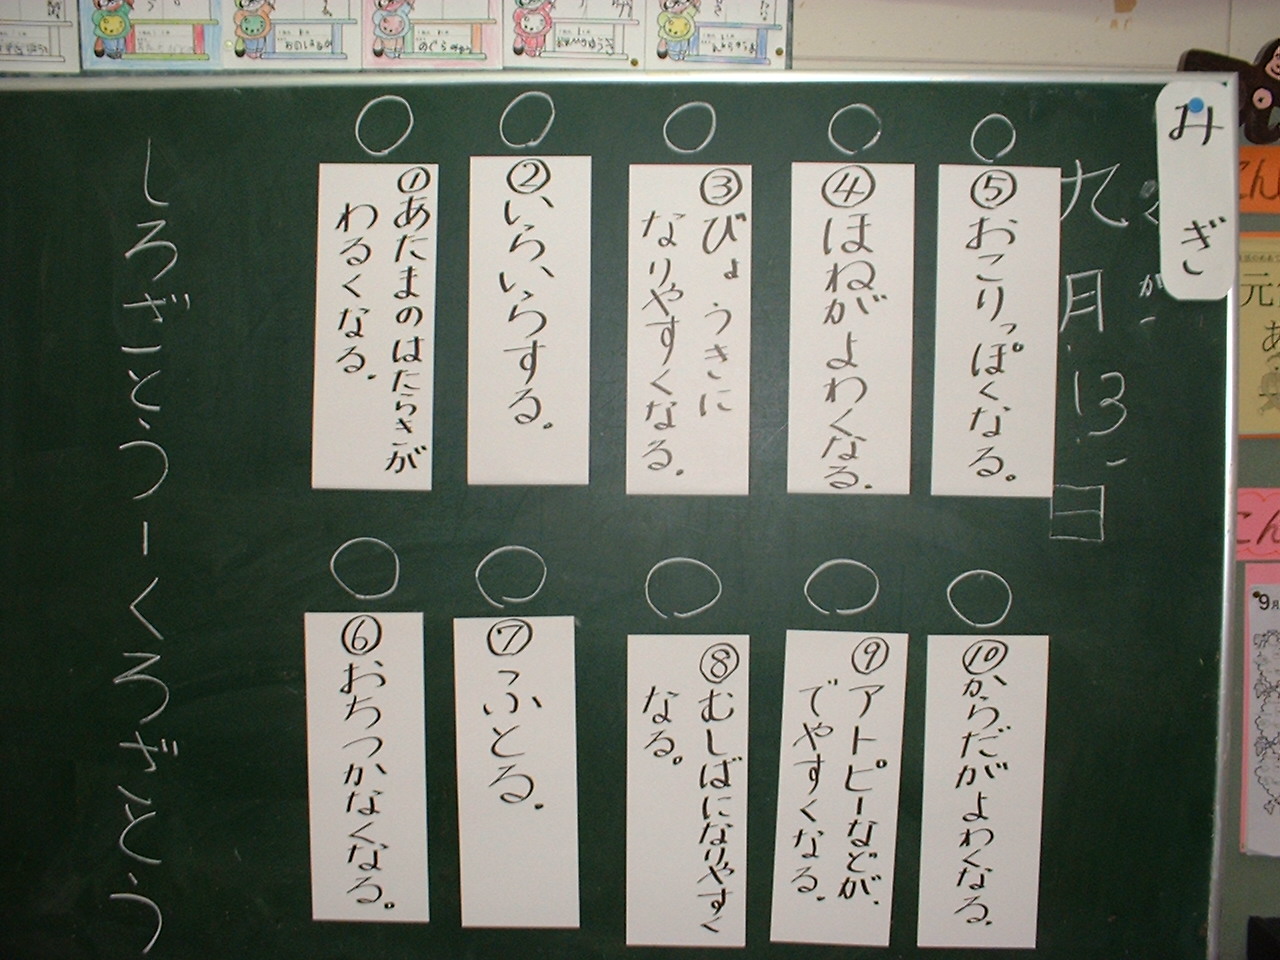 みぎ
九月13日
⑤おこりっぽくなる。
④ほねがよわくなる。
③びょうきに
なりやすくなる。
②いらいらする。
①あたまのはたらきが
わるくなる。
⑩からだがよわくなる。
⑨アトピーなどが
でやすくなる。
⑧むしばになりやすく
なる。
⑦ふとる。
⑥おちつかなくなる。
しろざとうーくろざとう
こん
元
あ
こん
9月